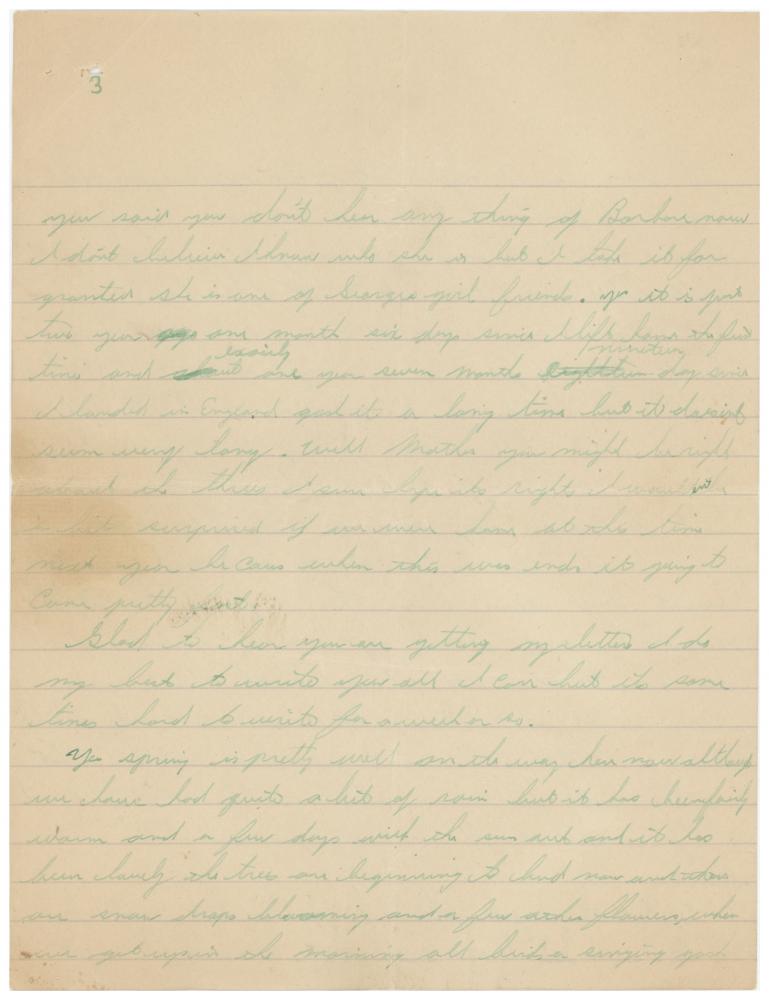 3
you said you don't hear any thing of Barbara now
I dont believe I know who she is but I take it for
granted she is one of Georges girl friends. yes it is just
two years ago one month six days since I left home the first
exactly nineteen
time and about one year seven months eighteen day since
I landed in England gosh it a long time but it doesint
seem very long. Well Mother you might be right
about the three I sure hope its right I wouldnt be
a bit surprised if we were home at this time
next year be caus when this war ends it going to
Come pretty
Glad to hear you are getting my letters I do
my best to write you all I can but its some
times hard to write for a week or so.
Yes spring is pretty well on the way here now although
we have had quite a bit of rain but it has been fairly
warm and a few days with the sun out and it has
been lovely the trees are beginning to bud now and there
are snow drops blooming and a few other flowers, when
we get up in the morning all birds a singing gosh